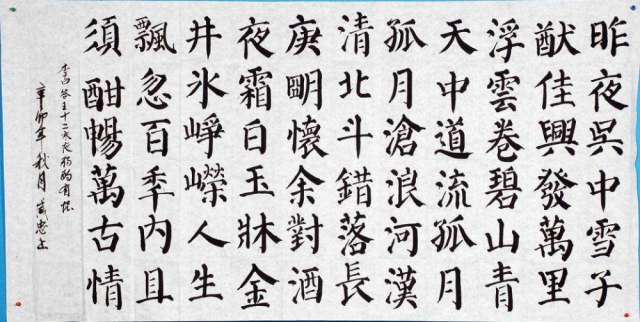 昨夜吳中雪子
猷佳興發萬里
浮雲卷碧山青
天中道流孤月
孤月滄浪河漢
清北斗錯落長
庚朙懷余對酒
夜霜白玉牀金
井氷崢嶸人生
飄忽百秊內且
須酣暢萬古情
李白答王十二寒夜獨酌有懷
辛卯年秋月